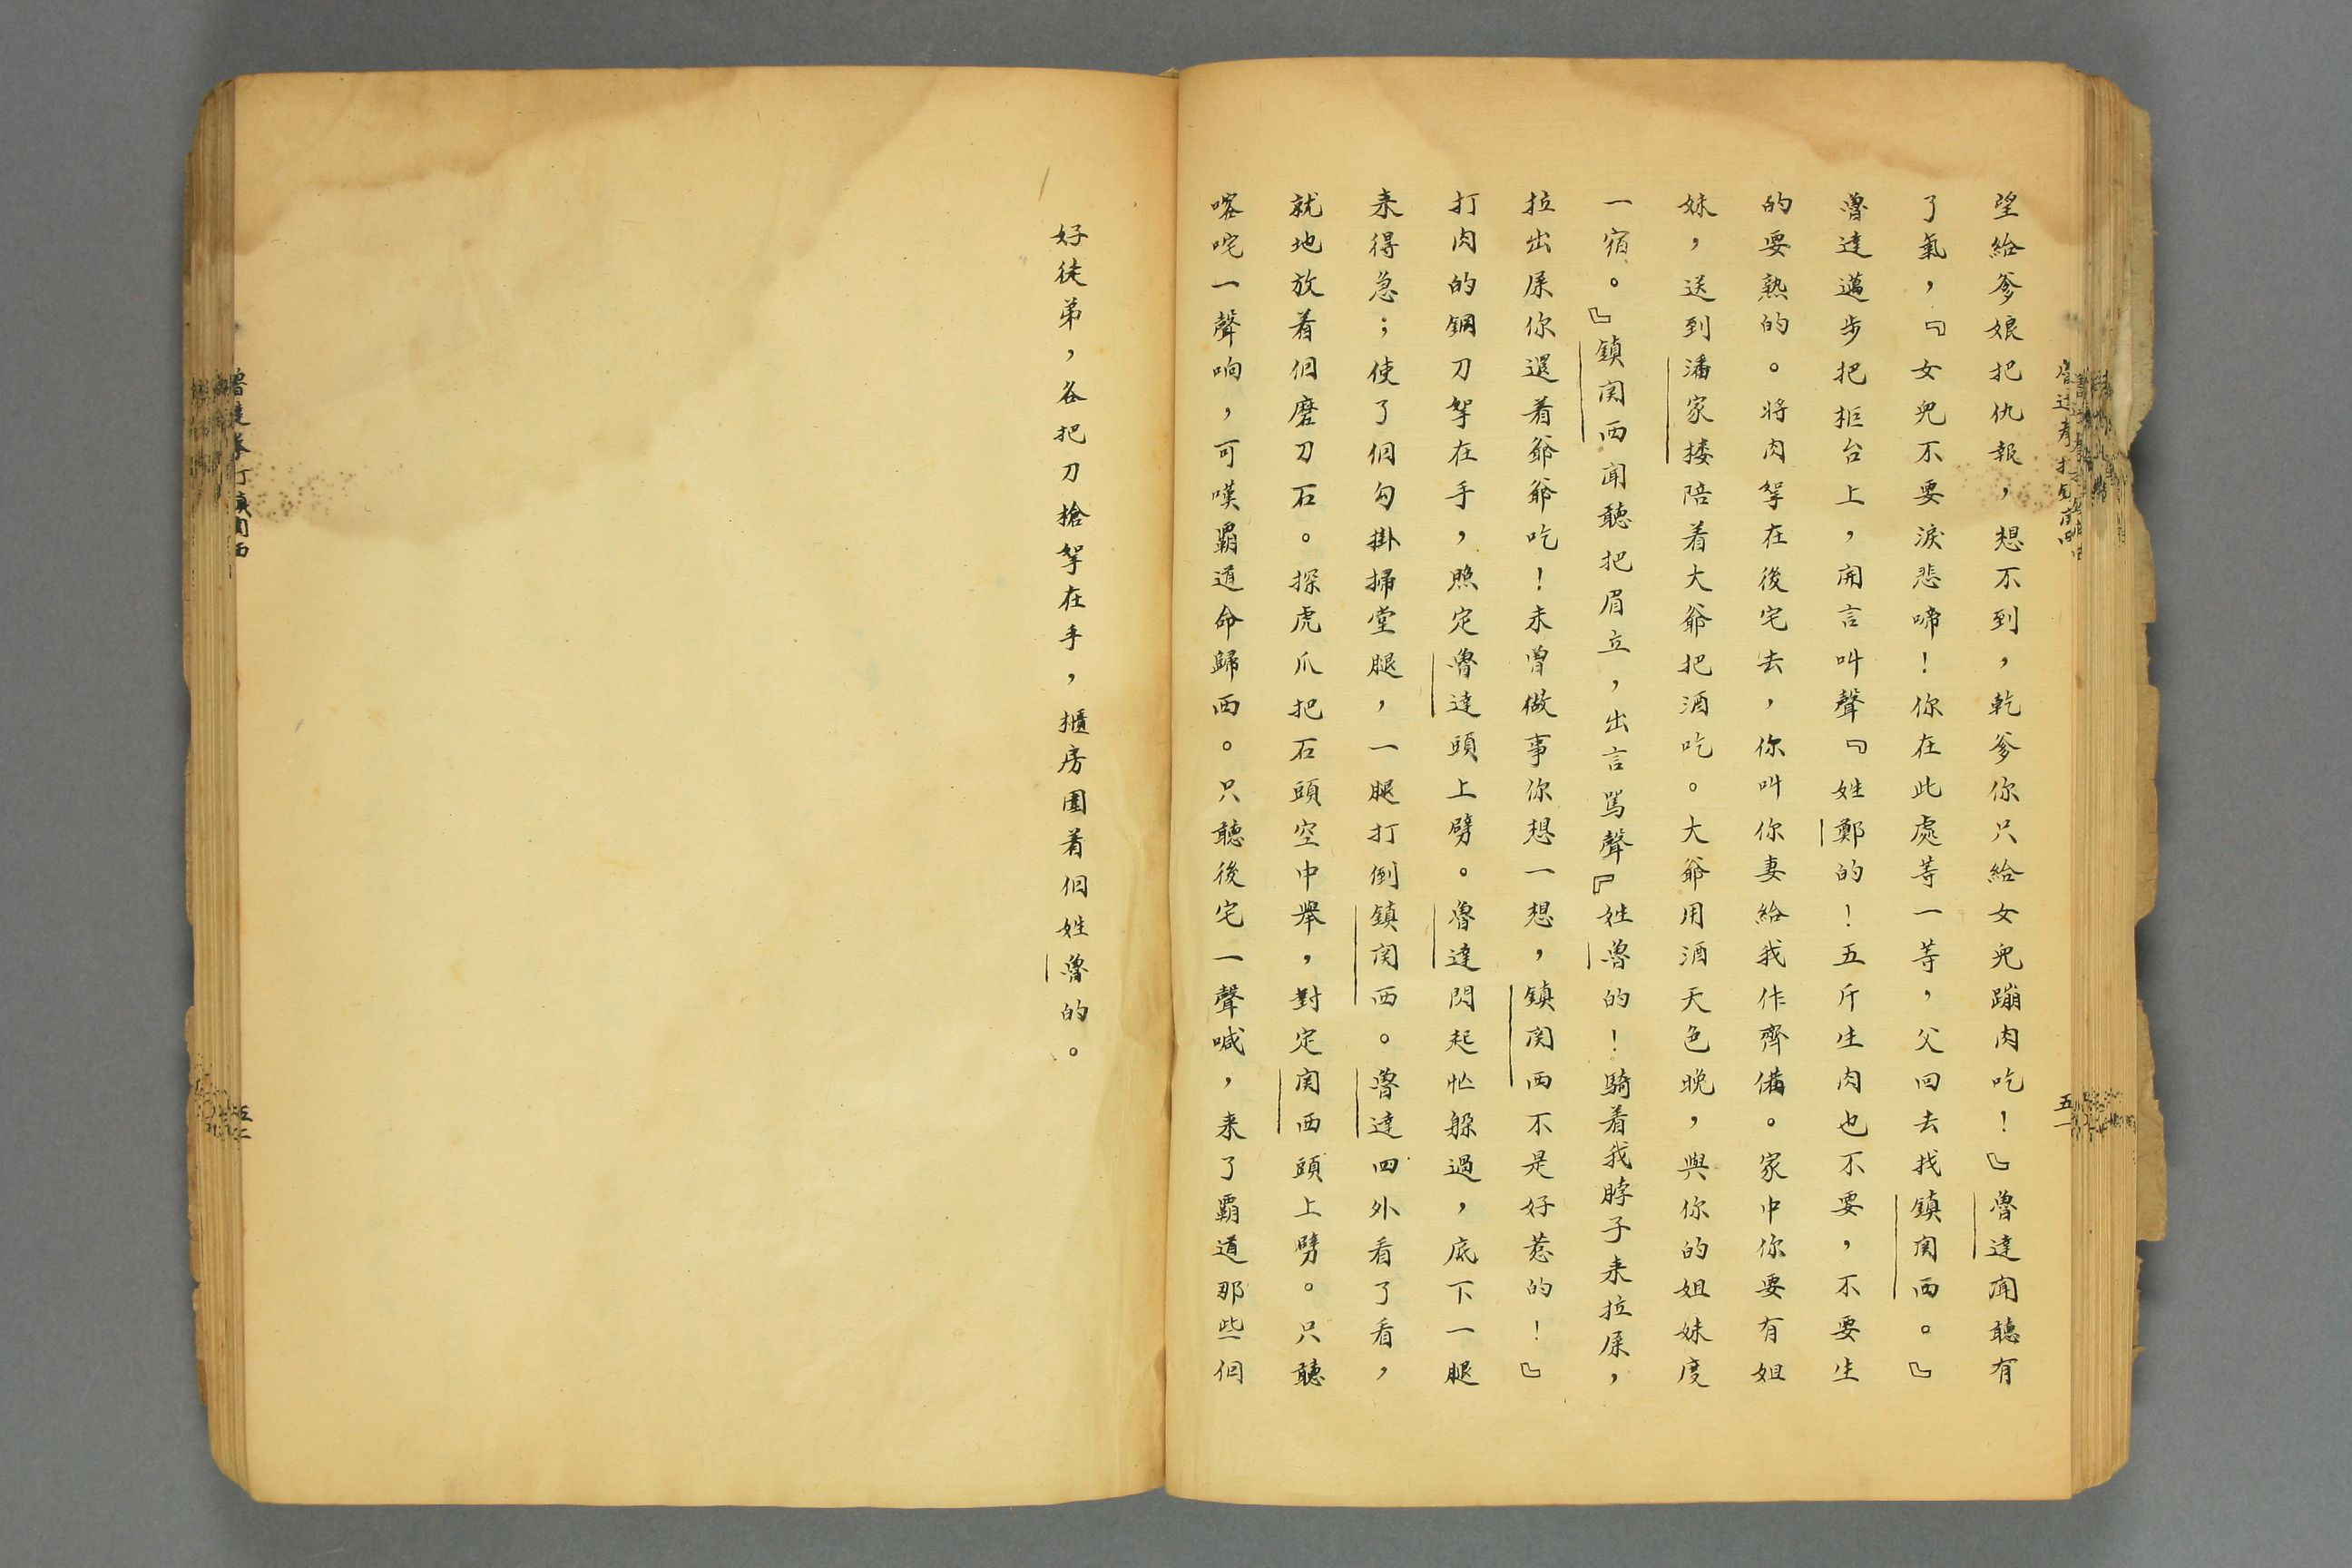 望給爹娘把仇報，想不到，乾爹你只給女兒蹦肉吃！』魯達聞聽有
了氣，『女兒不要淚悲啼！你在此處等一等，父回去找鎮関西。』
魯達邁步把柜台上，開言叫聲『姓鄭的！五斤生肉也不要，不要生
的要熟的。将肉拏在後宅去，你叫你妻給我作齊備。家中你要有姐
妹，送到潘家摟陪着大爺把酒吃。大爺用酒天色晚，與你的姐妹度
一宿。』鎮関西聞聽把眉立，出言罵聲『姓魯的！騎着我脖子来拉屎，
拉出屎你逞着爺爺吃！未曾做事你想一想，鎮関西不是好惹的！』
打肉的鋼刀拏在手，照定魯達頭上劈。魯達閃起忙躲過，底下一腿
来得急；使了個勾掛掃堂腿，一腿打倒鎮関西。魯達四外看了看，
就地放着個磨刀石。探虎爪把石頭空中舉，對定関西頭上劈。只聽
喀咤一聲响，可嘆覇道命歸西。只聽後宅一聲喊，来了覇道那些個
好徒弟，各把刀槍拏在手，櫃房圍着個姓魯的。
魯達拳打鎮関西
五一
魯達拳打鎮関西
五二